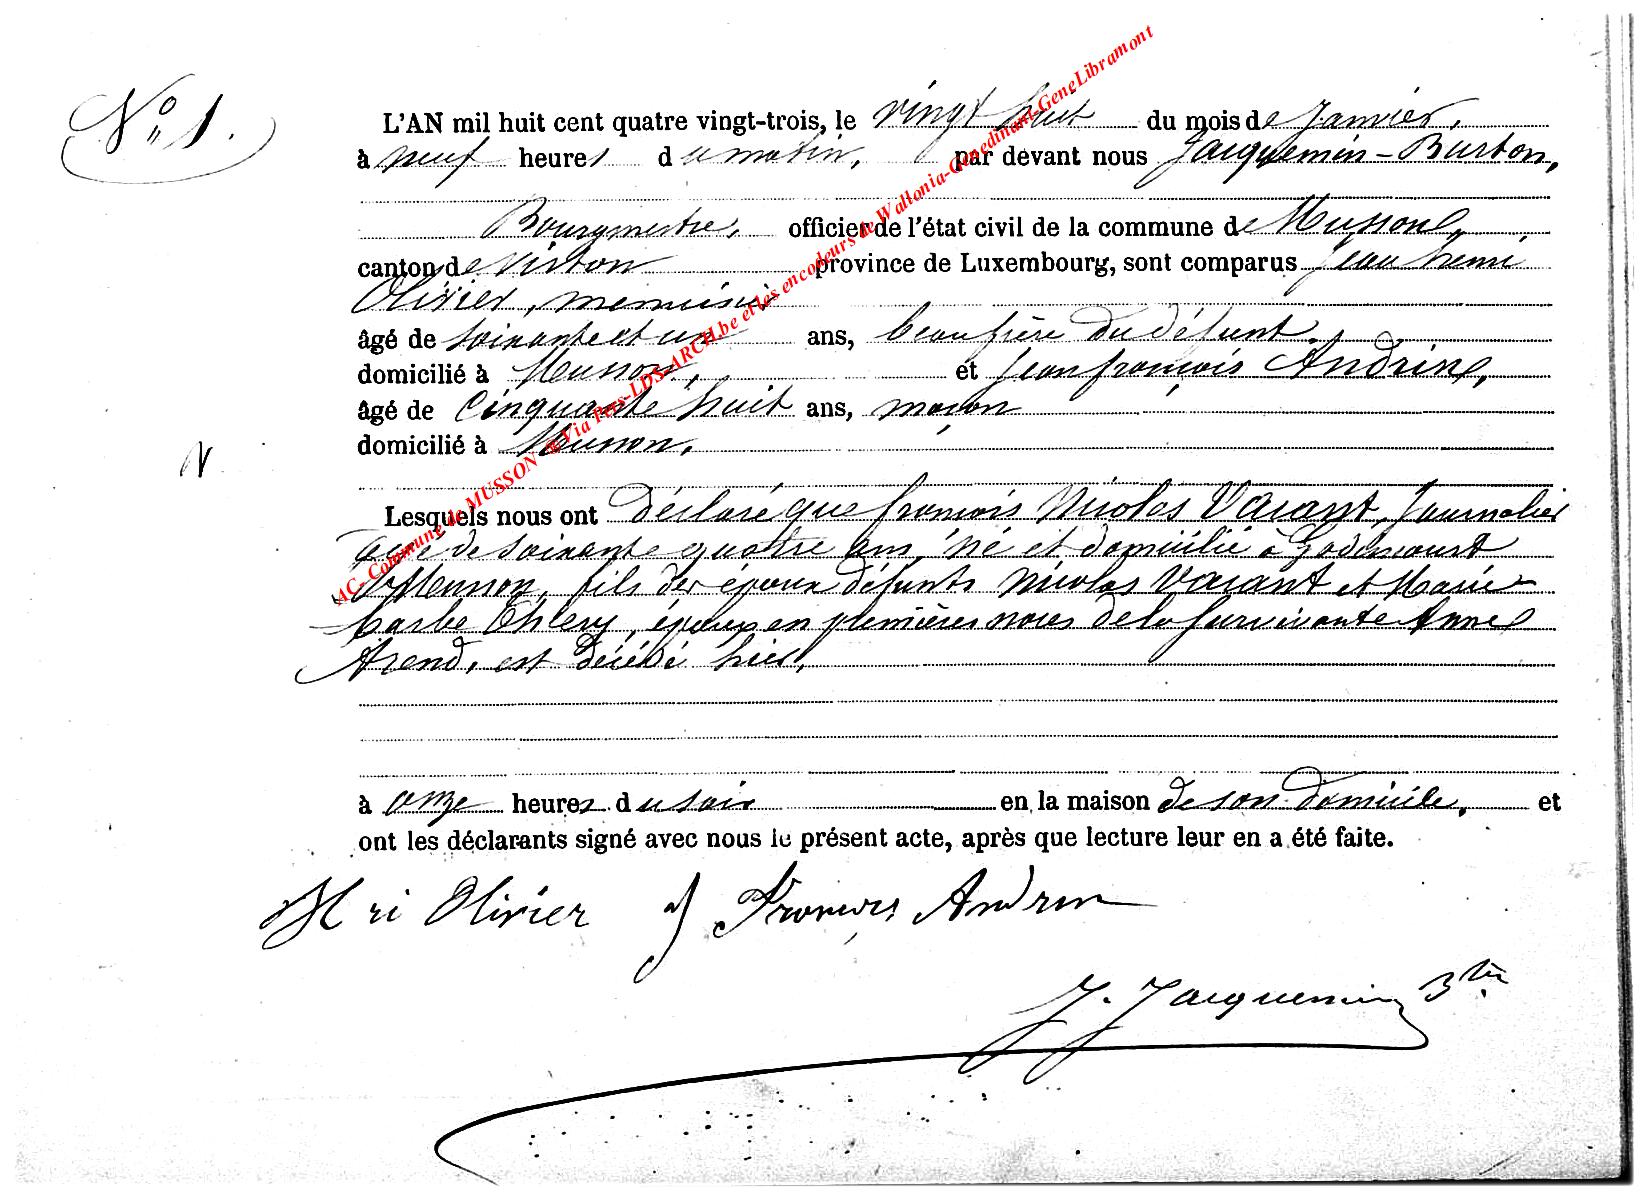 N° 1.
L'AN mil huit cent quatre vingt-trois, le vingt huit du mois de Janvier,
à neuf heures du matin, par devant nous Jacquemin-Burton,
Bourgmestre, officier de l'état civil de la commune de Musson,
canton de Virton province de Luxembourg, sont comparus Jean henri
Olivier, menuisier
âgé de soixante et un ans, beau frère du défunt,
domicilié à Musson, et Jean françois Andrin,
âgé de Cinquante huit ans, maçon
domicilié à Musson,
Lesquels nous ont déclaré que françois Nicolas Vaiant, Journalier
agé de soixante quatre ans, né et domicilié à Godincourt
Musson, fils des époux défunts Nicolas Vaiant et Marie
barbe Thiery, époux en premières noces de la survivante Anne
Arend, est décédé hier,
à onze heures du soir en la maison de son domicile, et
ont les déclarants signé avec nous le présent acte, après que lecture leur en a été faite.
H ri Olivier J François Andrin
J. Jacquemin Btu
AC- Commune de MUSSON & Via Pers-LDS-ARCH.be et les encodeurs de Wallonia-Genedinant-GeneLibramont